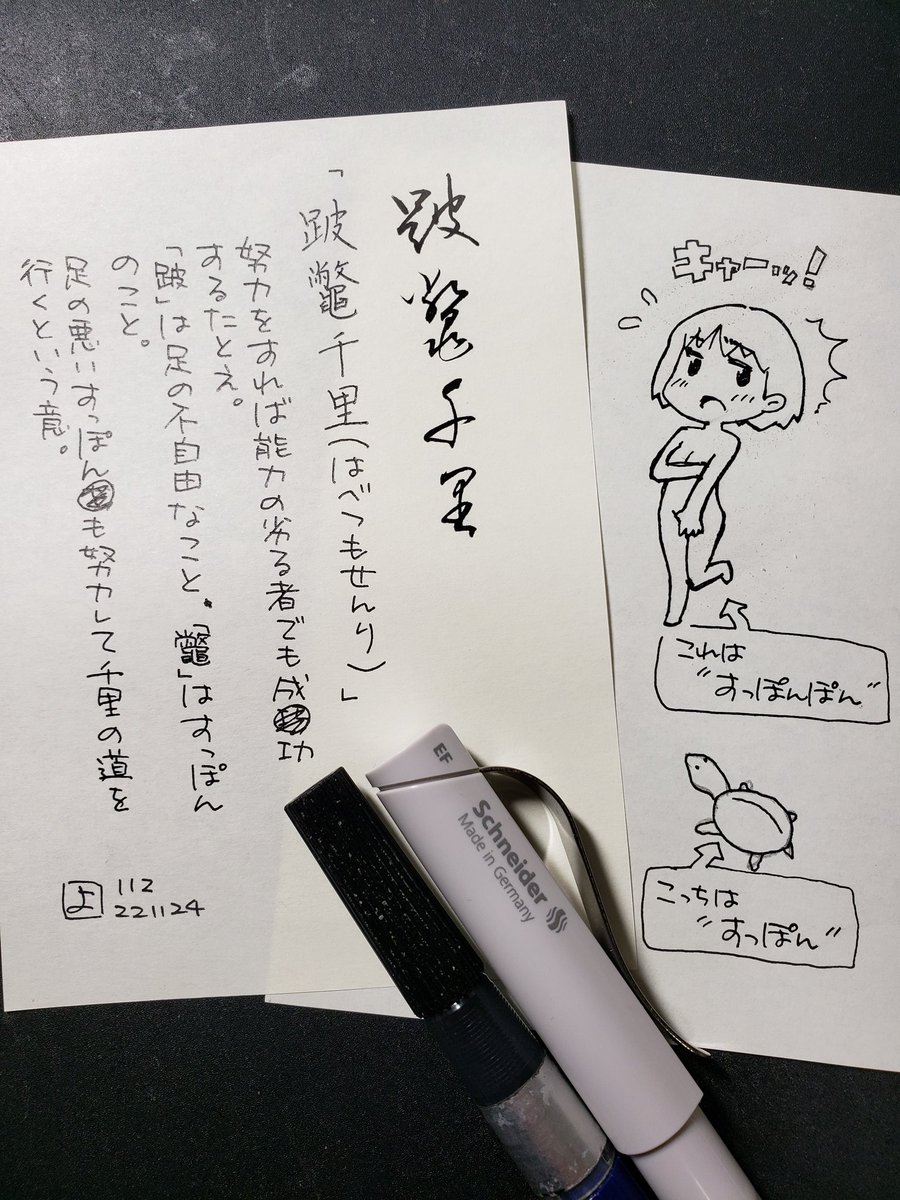 跛鼈千里
「跛鼈千里(はべつもせんり)」
努力をすれば能力の劣る者でも成功
するたとえ。
「跛」は足の不自由なこと。「鼈」はすっぽん
のこと。
足の悪いすっぽんも努力して千里の道を
行くという意。
よ 112
221124
キャーッ!
これは
"すっぽんぽん"
こっちは
"すっぽん"
EF
Schneider
Made in Germany